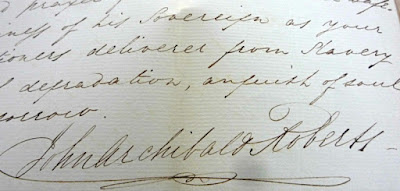 prayer
iness of his Sovereign as your
tioners deliverer from Slavery
degradation, anguish of soul
orrow.
John Archibald Roberts